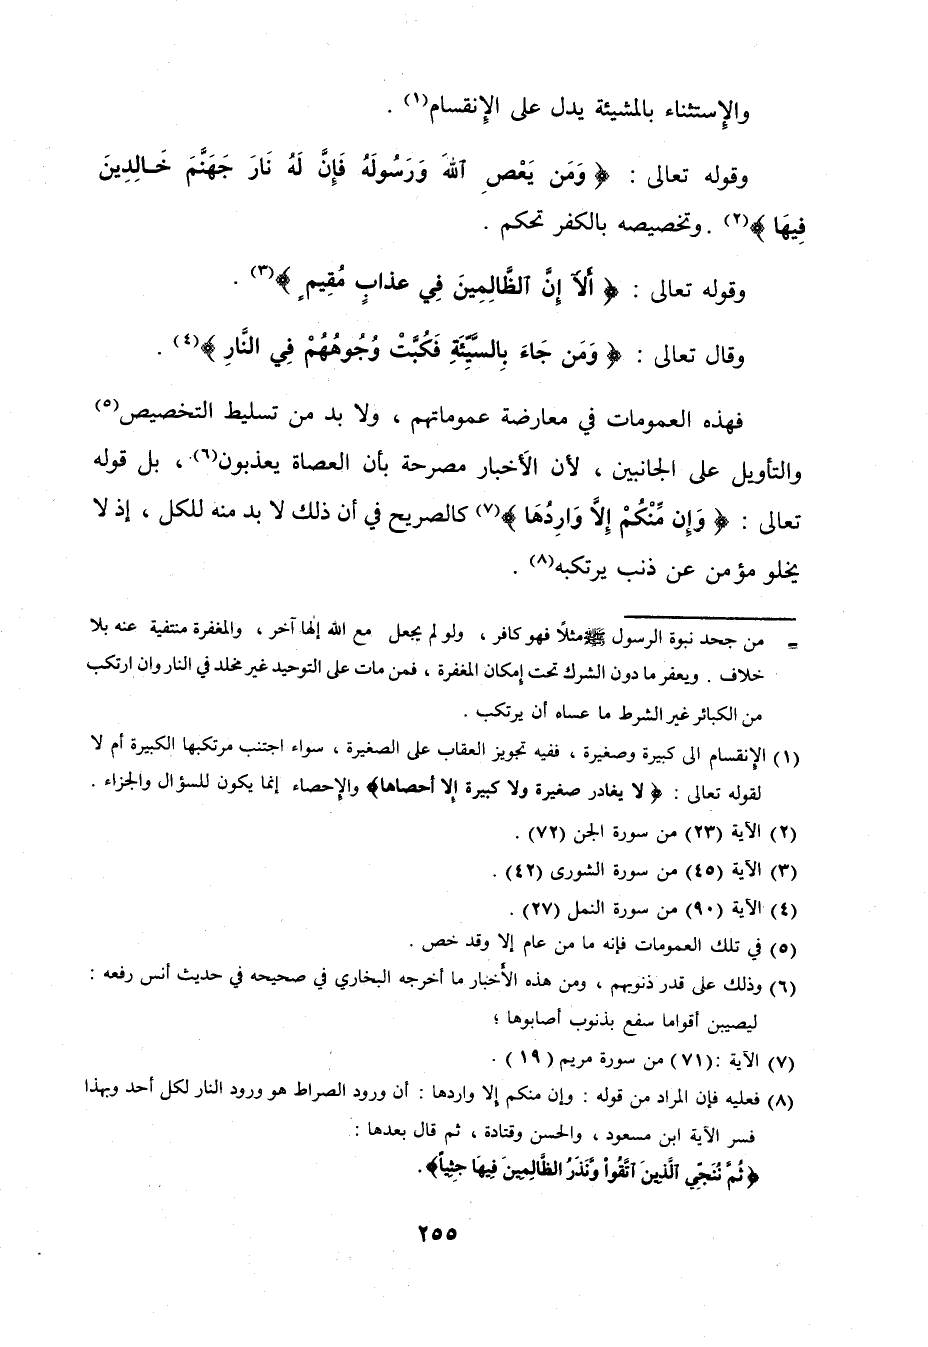 والإستثناء بالمشيئة يدل على الإنقسام(١) .
وقوله تعالى : ﴿ وَمَن يَعْصِ ٱللهَ وَرَسُولَهُ فَإِنَّ لَهُ نَارَ جَهَنَّمَ خَالِدِينَ
فِيهَا ﴾(٢) . وتخصيصه بالكفر تحكم .
وقوله تعالى : ﴿ أَلَآ إِنَّ ٱلظَّالِمِينَ فِي عذابٍ مُقِيمٍ ﴾(٣) .
وقال تعالى : ﴿ وَمَن جَاءَ بِالسَّيِّئَةِ فَكُبَّتْ وُجُوهُهُمْ فِي النَّارِ ﴾(٤) .
فهذه العمومات في معارضة عموماتهم ، ولا بد من تسليط التخصيص(٥)
والتأويل على الجانبين ، لأن الأخبار مصرحة بأن العصاة يعذبون(٦) ، بل قوله
تعالى : ﴿ وَإِن مِّنْكُمْ إِلاَّ وَارِدُهَا ﴾(٧) كالصريح في أن ذلك لا بد منه للكل ، إذ لا
يخلو مؤمن عن ذنب يرتكبه(٨) .
= من جحد نبوة الرسول ﷺ مثلاً فهو كافر ، ولو لم يجعل مع الله إلها آخر ، والمغفرة منتفية عنه بلا
خلاف . ويعفر ما دون الشرك تحت إمكان المغفرة ، فمن مات على التوحيد غير مخلد في النار وان ارتكب
من الكبائر غير الشرط ما عساه أن يرتكب .
(١) الإنقسام الى كبيرة وصغيرة ، ففيه تجويز العقاب على الصغيرة ، سواء اجتنب مرتكبها الكبيرة أم لا
لقوله تعالى : ﴿ لا يغادر صغيرة ولا كبيرة إلا أحصاها﴾ والإحصاء إنما يكون للسؤال والجزاء .
(٢) الآية (٢٣) من سورة الجن (٧٢) .
(٣) الآية (٤٥) من سورة الشورى (٤٢) .
(٤) الآية (٩٠) من سورة النمل (٢٧) .
(٥) في تلك العمومات فإنه ما من عام إلا وقد خص .
(٦) وذلك على قدر ذنوبهم ، ومن هذه الأخبار ما أخرجه البخاري في صحيحه في حديث أنس رفعه :
ليصيبن أقواما سفع بذنوب أصابوها ؛
(٧) الآية : (٧١) من سورة مريم (١٩) .
(٨) فعليه فإن المراد من قوله : وإن منكم إلا واردها : أن ورود الصراط هو ورود النار لكل أحد وبهذا
فسر الآية ابن مسعود ، والحسن وقتادة ، ثم قال بعدها :
﴿ ثُمَّ نُنَجِّي ٱلَّذِينَ ٱتَّقُواْ وَّنَذَرُ الظَّالِمِينَ فِيهَا جِثِياً﴾ .
٢٥٥